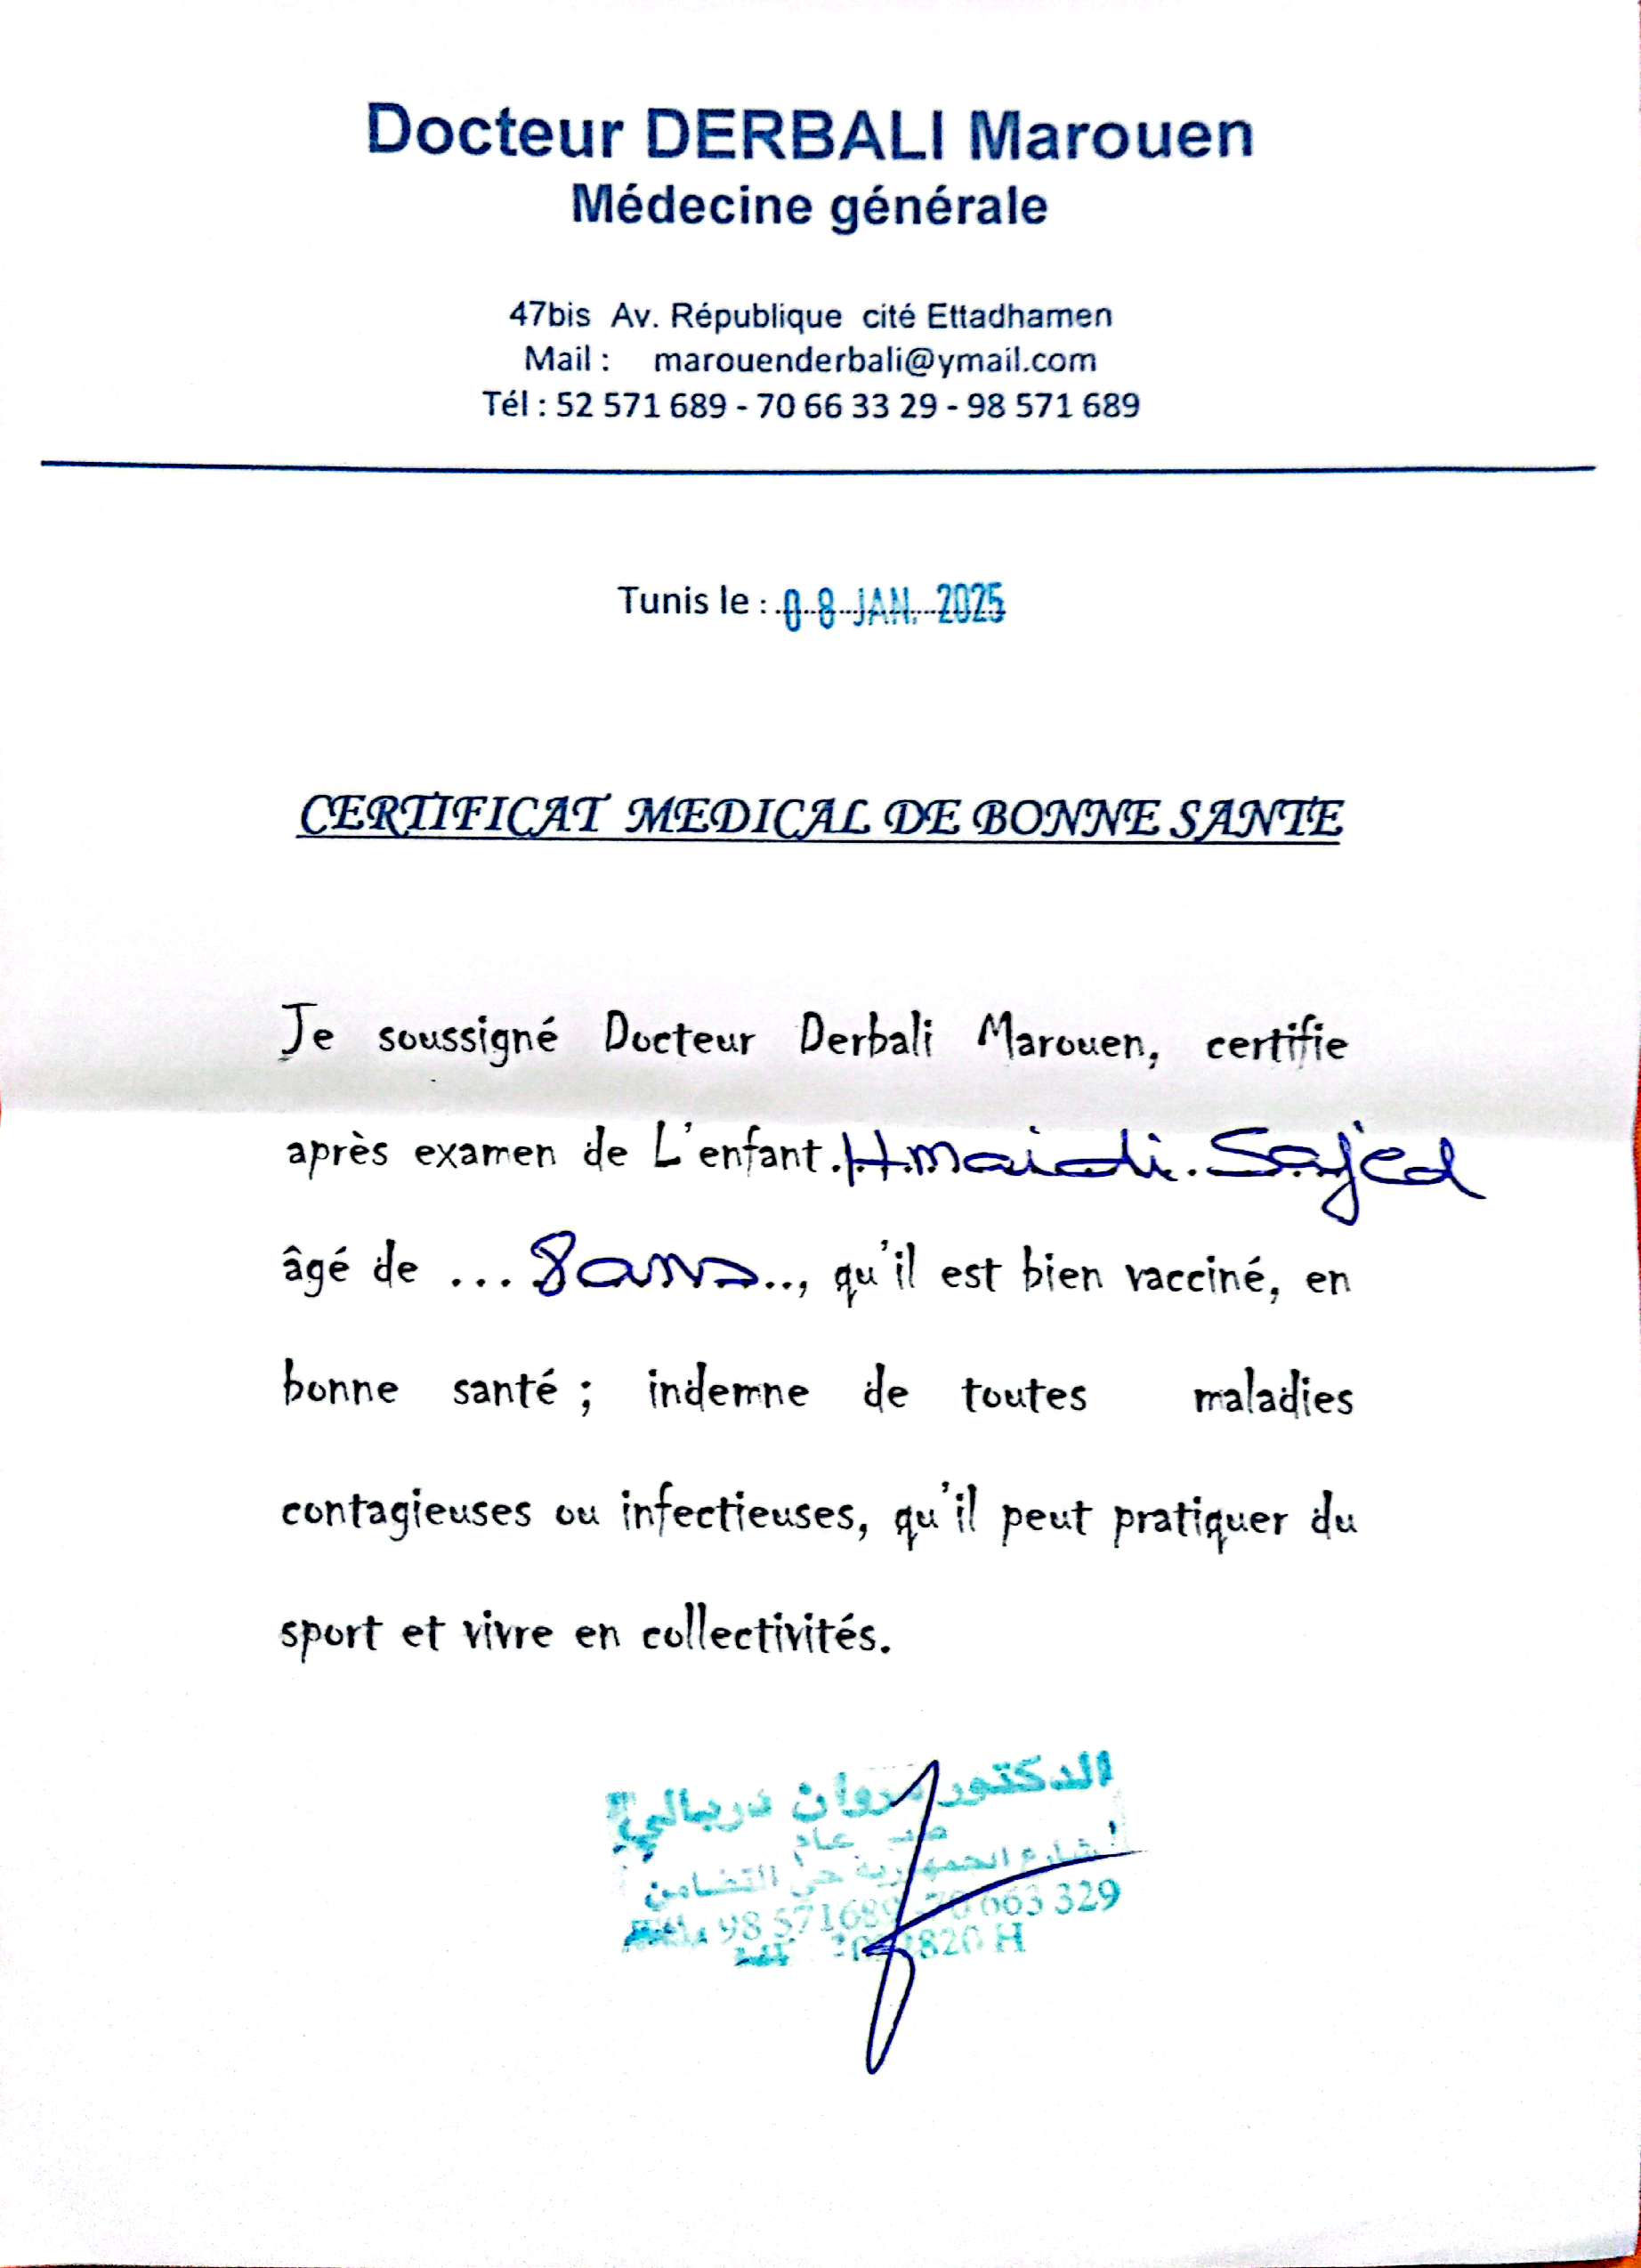 Docteur DERBALI Marouen
Médecine générale
47bis Av. République cité Ettadhamen
Mail : marouenderbali@ymail.com
Tél : 52 571 689 - 70 66 33 29 - 98 571 689
Tunis le : 08 JAN. 2025
CERTIFICAT MEDICAL DE BONNE SANTE
Je soussigné Docteur Derbali Marouen, certifie
après examen de L'enfant.Hmaidi.Sajed
âgé de ...8ans.., qu'il est bien vacciné, en
bonne santé ; indemne de toutes maladies
contagieuses ou infectieuses, qu'il peut pratiquer du
sport et vivre en collectivités.
الدكتور مروان دربالي
عام
شارع الجمهورية حي التضامن
98 571689 - 70 663 329